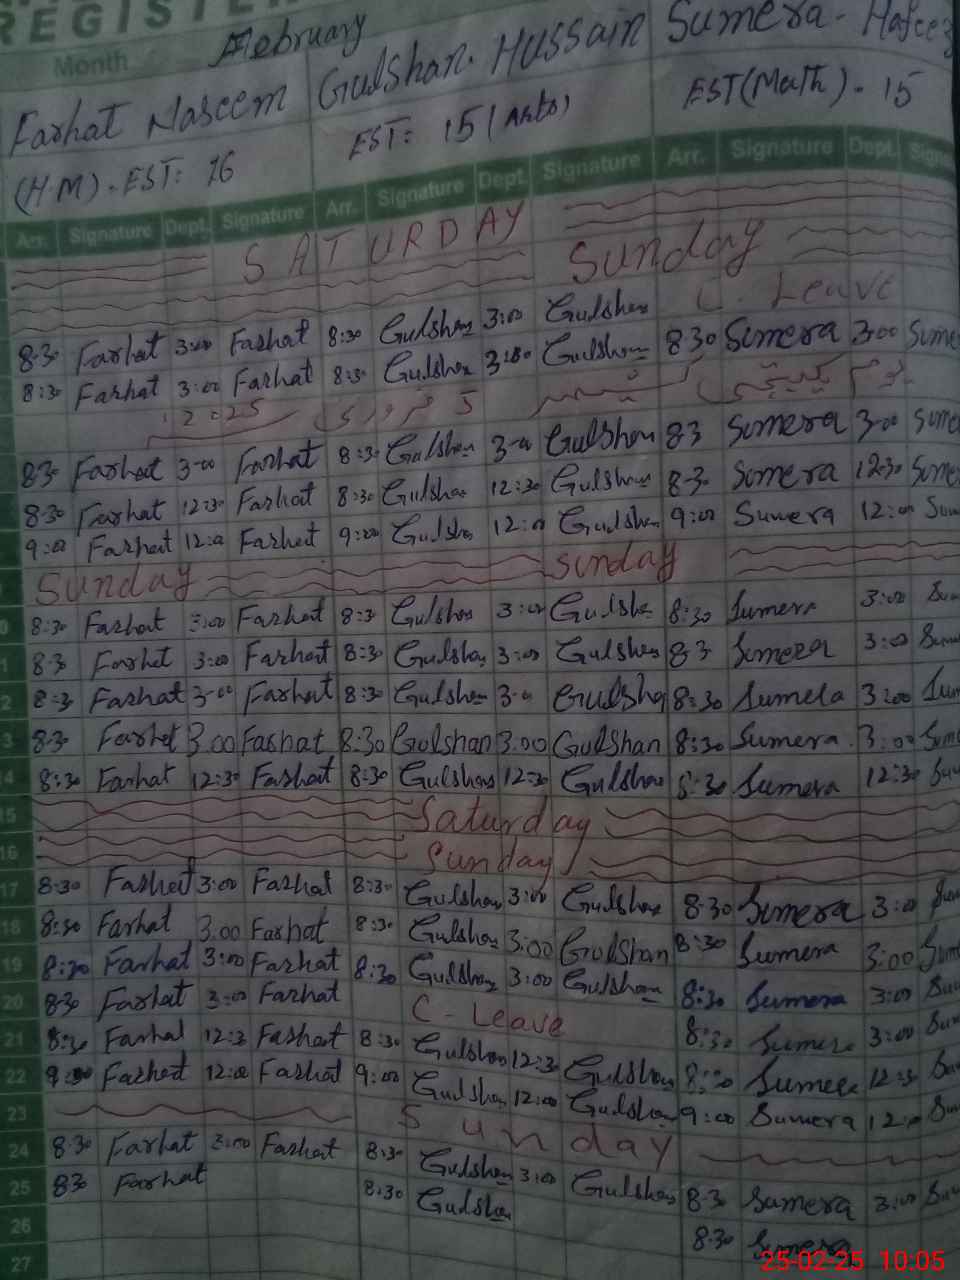 REGISTER
Month February
Farhat Naseem Gulshan. Hussain Sumera - Hafeez
(H.M). EST: 16 EST: 15 (Arts) EST(Math). 15
Arr. Signature Dept. Signature Arr. Signature Dept. Signature Arr. Signature Dept. Signa
SATURDAY
Sunday
8:30 Farhat 3:00 Farhat 8:30 Gulshan 3:00 Gulshan C. Leave
8:30 Farhat 3:00 Farhat 8:30 Gulshan 3:00 Gulshan 830 Sumera 3:00 Sume
2025 5 فروری
830 Farhat 3-00 Farhat 8:30 Gulshan 3-00 Gulshan 83 Sumera 3-00 Sume
8:30 Farhat 12:30 Farhat 8:30 Gulshan 12:30 Gulshan 8-30 Sumera 12:30 Sume
9:00 Farhat 12:00 Farhat 9:00 Gulshan 12:00 Gulshan 9:00 Sumera 12:00 Sum
Sunday sunday
8:30 Farhat 3:00 Farhat 8:30 Gulshan 3:00 Gulshan 8:30 Sumera 3:00 Su
1 8:30 Farhat 3:00 Farhat 8:30 Gulshan 3:00 Gulshan 83 Sumera 3:00 Sum
2 8:30 Farhat 3-00 Farhat 8:30 Gulshan 3-0 Gulshan 8:30 Sumera 3:00 Sum
3 8:30 Farhat 3.00 Farhat 8:30 Gulshan 3:00 Gulshan 8:30 Sumera 3:00 Sum
14 8:30 Farhat 12:30 Farhat 8:30 Gulshan 12:30 Gulshan 8:30 Sumera 12:30 Su
15 Saturday
16 Sunday
17 8:30 Farhat 3:00 Farhat 8:30 Gulshan 3:00 Gulshan 8:30 Sumera 3:00 Su
18 8:30 Farhat 3.00 Farhat 8:30 Gulshan 3:00 Gulshan 8:30 Sumera 3:00 Sum
19 8:30 Farhat 3:00 Farhat 8:30 Gulshan 3:00 Gulshan 8:30 Sumera 3:00 Su
20 830 Farhat 3:00 Farhat C-Leave 8:30 Sumera 3:00 Su
21 8:30 Farhat 12:3 Farhat 8:30 Gulshan 12:30 Gulshan 8:30 Sumera 12:30 Su
22 9:00 Farhat 12:00 Farhat 9:00 Gulshan 12:00 Gulshan 9:00 Sumera 12:00 Su
23 Sunday
24 8:30 Farhat 3:00 Farhat 8:30 Gulshan 3:00 Gulshan 8:30 Sumera 3:00 Su
25 830 Farhat 8:30 Gulshan 8:30 Sumera
26
27
25-02-25 10:05